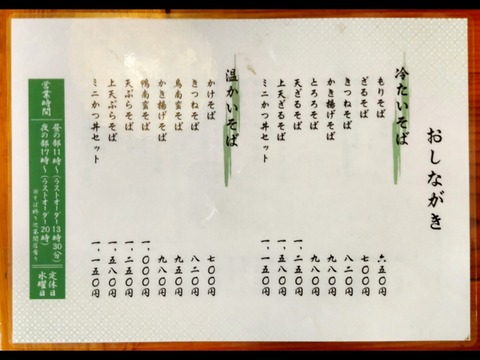 おしながき
冷たいそば
もりそば 六五〇円
ざるそば 七〇〇円
きつねそば 八二〇円
かき揚げそば 九八〇円
とろろそば 九八〇円
天ざるそば 一、二五〇円
上天ざるそば 一、五八〇円
ミニかつ丼セット 一、一五〇円
温かいそば
かけそば 七〇〇円
きつねそば 八二〇円
鳥南蛮そば 九五〇円
かき揚げそば 九八〇円
鴨南蛮そば 一、〇〇〇円
天ぷらそば 一、二五〇円
上天ぷらそば 一、五八〇円
ミニかつ丼セット 一、一五〇円
営業時間
昼の部11時〜(ラストオーダー13時30分)
夜の部17時〜(ラストオーダー20時)
※そば終り次第閉店有り
定休日
水曜日